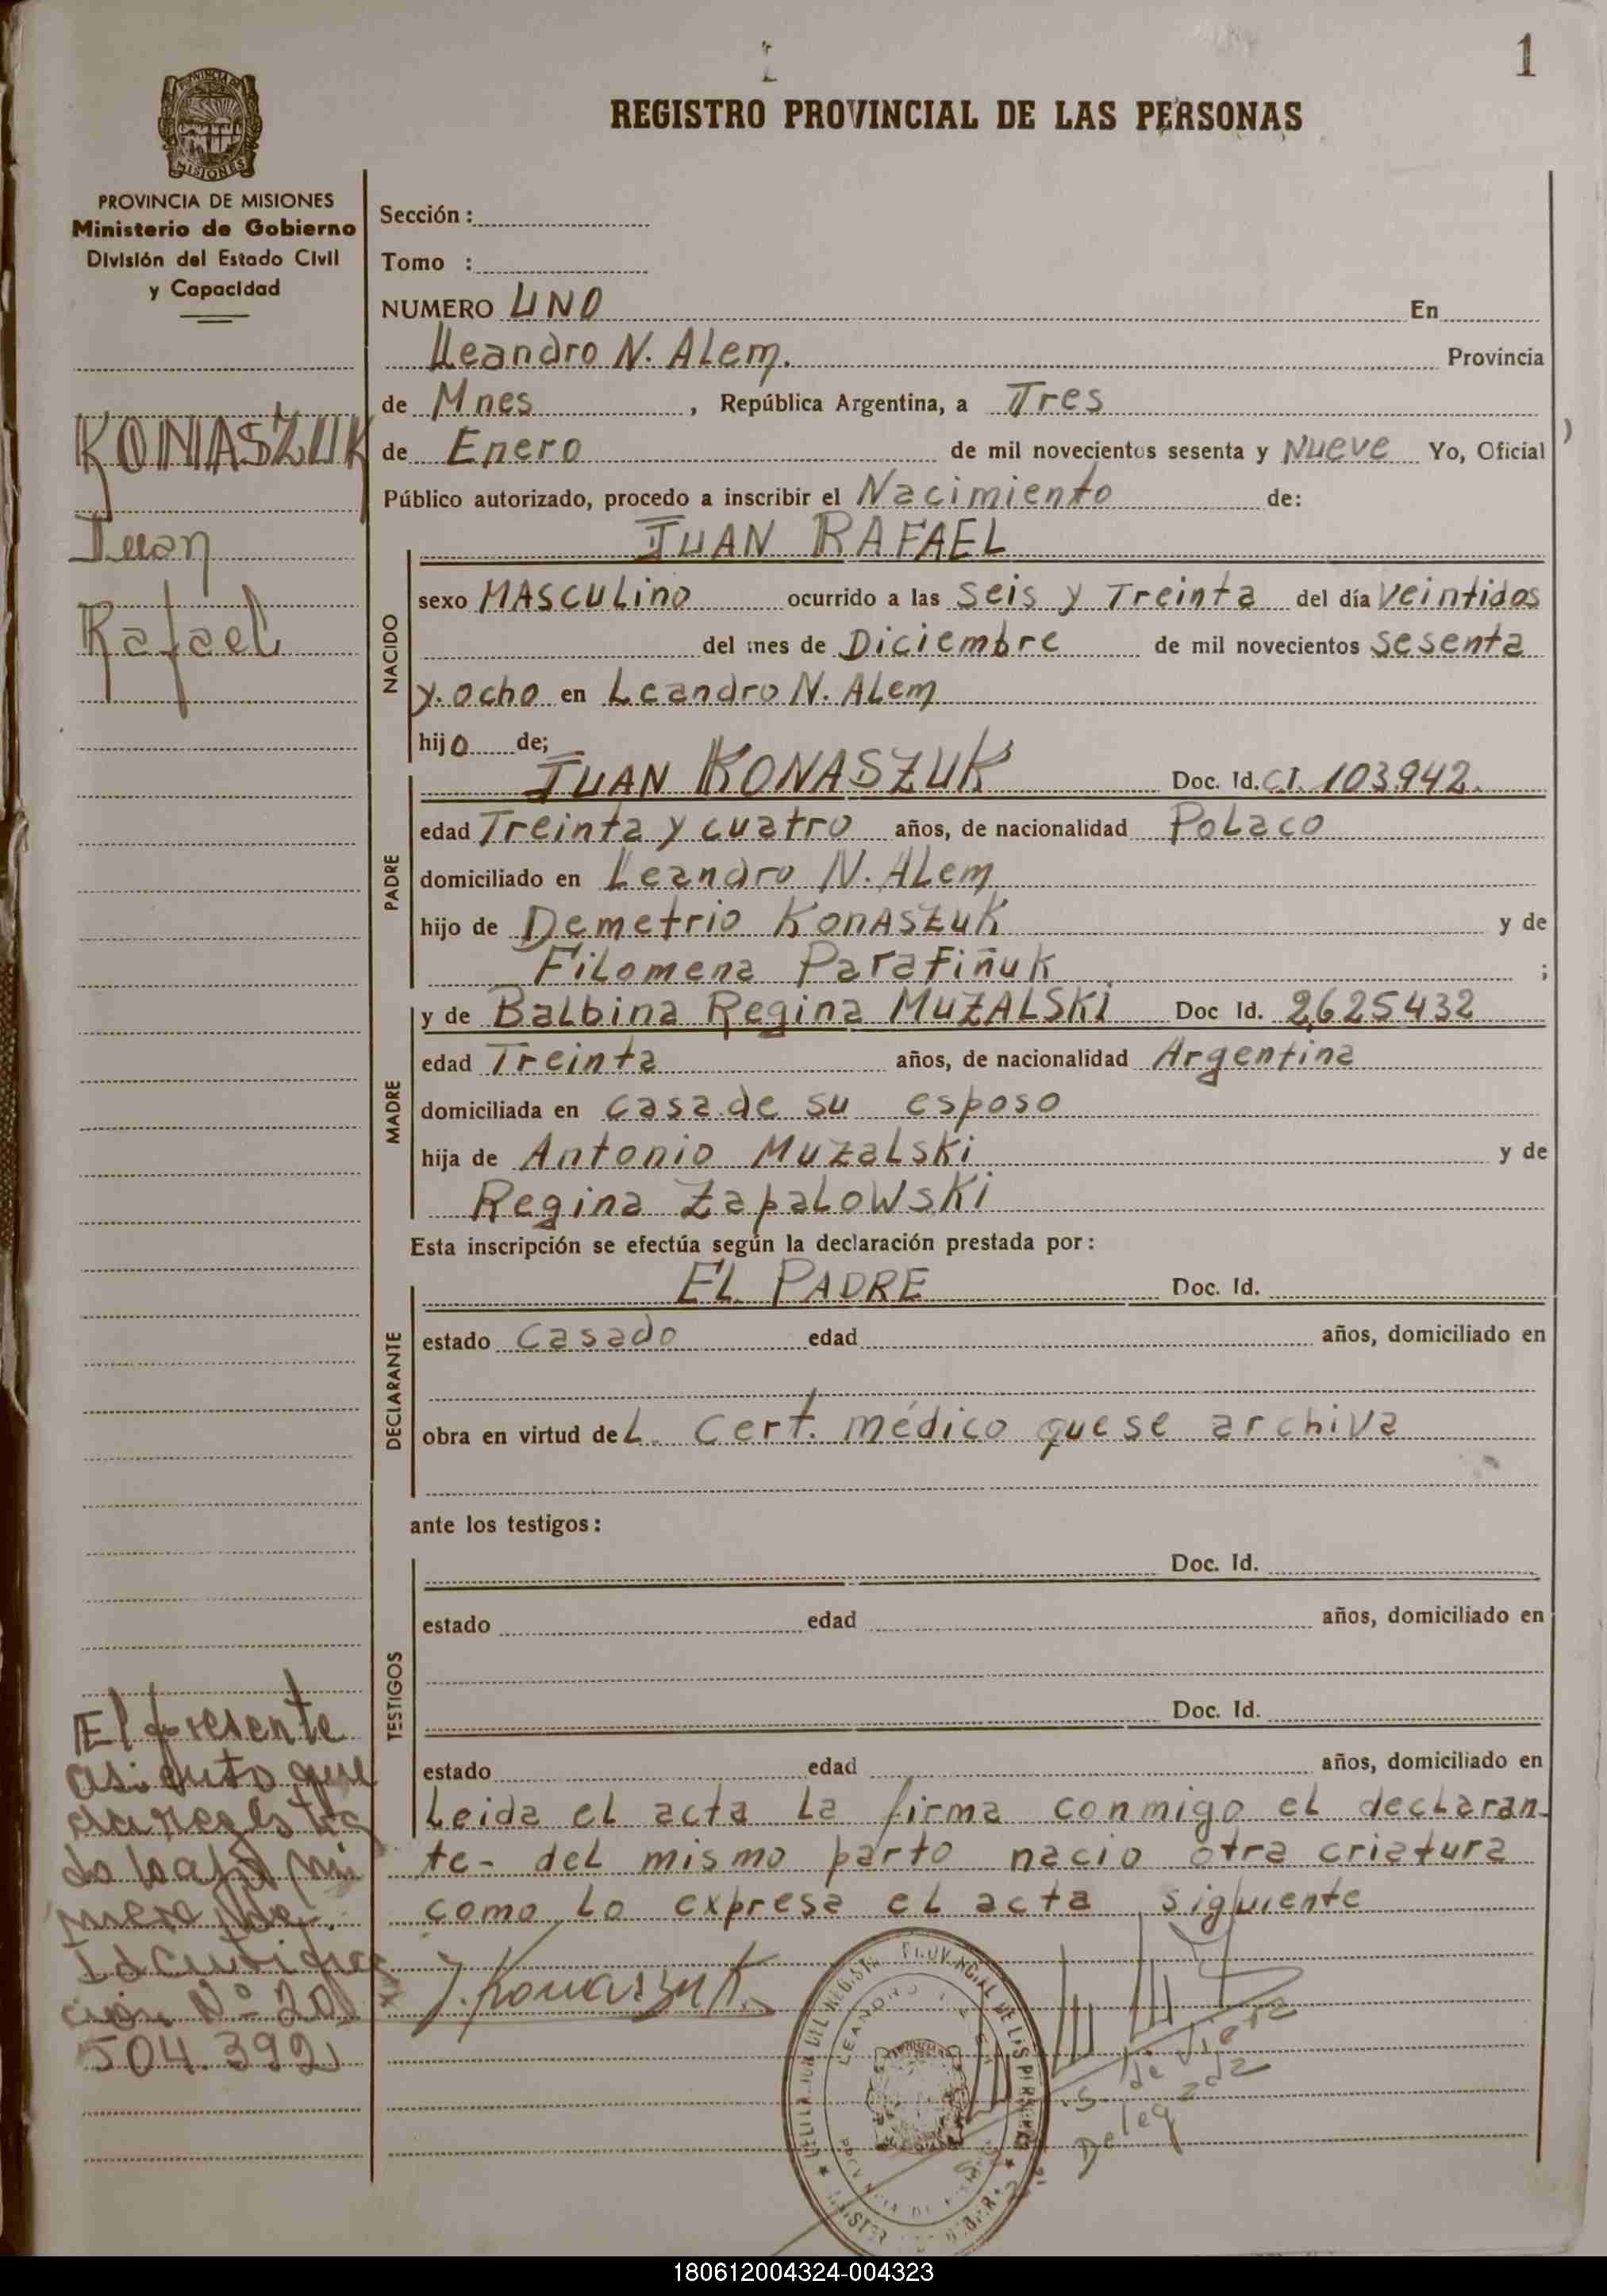 1
REGISTRO PROVINCIAL DE LAS PERSONAS
MISIONES
PROVINCIA DE MISIONES
Ministerio de Gobierno
División del Estado Civil
y Capacidad
KONASZUK
Juan
Rafael
Sección:
Tomo :
NUMERO UNO En
Leandro N. Alem. Provincia
de Mnes , República Argentina, a Tres
de Enero de mil novecientos sesenta y Nueve Yo, Oficial
Público autorizado, procedo a inscribir el Nacimiento de:
JUAN RAFAEL
NACIDO
sexo MASCULino ocurrido a las seis y Treinta del día veintidos
del mes de Diciembre de mil novecientos sesenta
y ocho en Leandro N. Alem
hijo de;
PADRE
JUAN KONASZUK Doc. Id. C.I. 103.942.
edad Treinta y cuatro años, de nacionalidad Polaco
domiciliado en Leandro N. Alem
hijo de Demetrio Konaszuk y de
Filomena Parafiñuk ;
MADRE
y de Balbina Regina MUZALSKi Doc Id. 2.625432
edad Treinta años, de nacionalidad Argentina
domiciliada en casa de su esposo
hija de Antonio Muzalski y de
Regina Zapalowski
Esta inscripción se efectúa según la declaración prestada por:
DECLARANTE
EL PADRE Doc. Id.
estado casado edad años, domiciliado en
obra en virtud deL Cert. médico que se archiva
ante los testigos:
TESTIGOS
Doc. Id.
estado edad años, domiciliado en
Doc. Id.
estado edad años, domiciliado en
Leida el acta la firma conmigo el declaran-
te- del mismo parto nacio otra criatura
como lo expresa el acta siguiente
J. Konaszuk
El presente
asiento que
da registra
do bajo nú
mero de
Identifica
ción Nº 20
504.392
S. de Viera
Delegada
LEANDRO N. ALEM
180612004324-004323